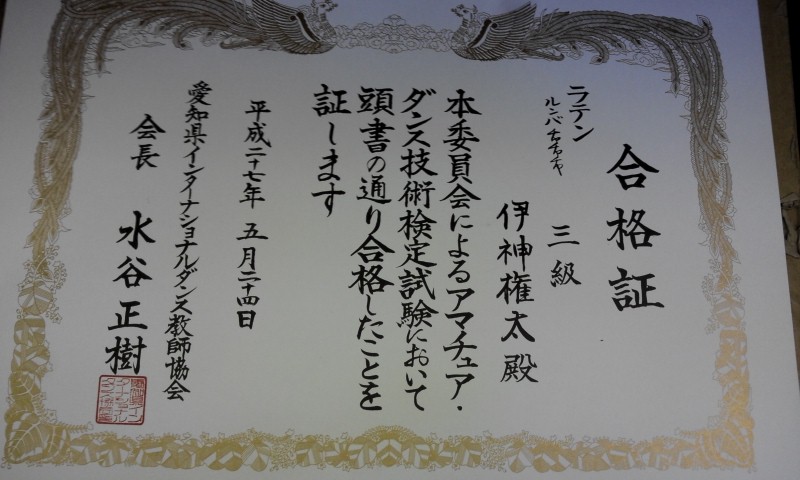 合格証
ラテン
ルンバ チャチャチャ
三級
伊神権太殿
本委員会によるアマチュア・
ダンス技術検定試験において
頭書の通り合格したことを
証します
平成二十七年 五月二十四日
愛知県インターナショナルダンス教師協会
会長 水谷正樹